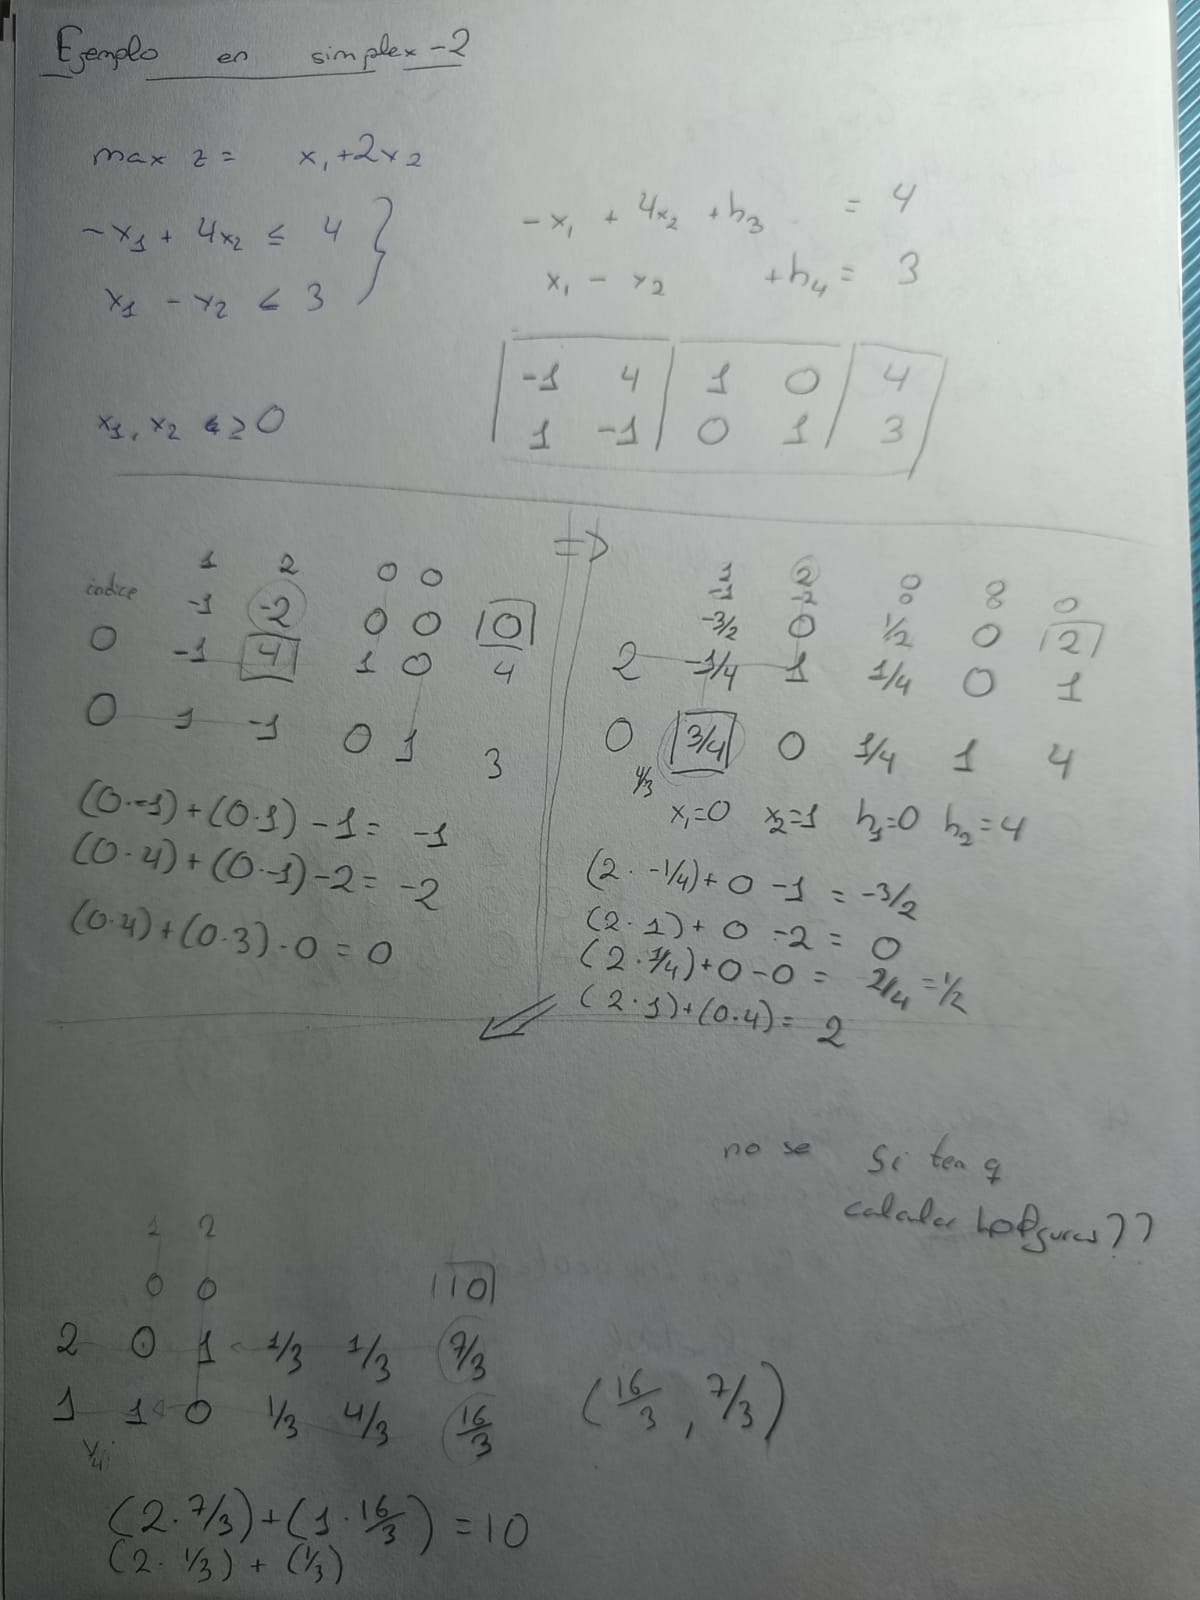 Ejemplo en simplex-2
max z = x₁+2x₂
-x₁ + 4x₂ ≤ 4
x₁ - x₂ ≤ 3
x₁, x₂ ≥ 0
-x₁ + 4x₂ + h₃ = 4
x₁ - x₂ + h₄ = 3
-1 4 1 0 4
1 -1 0 1 3
1 2 0 0
índice -1 -2 0 0 0
0 -1 4 1 0 4
0 1 -1 0 1 3
(0·-1)+(0·1)-1= -1
(0·4)+(0·-1)-2= -2
(0·4)+(0·3)-0=0
=>
2 0 0 0
-3/2 0 1/2 0 2
2 -1/4 1 1/4 0 1
0 3/4 0 1/4 1 4
4/3
x₁=0 x₂=1 h₁=0 h₂=4
(2·-1/4)+0-1 = -3/2
(2·1)+0-2= 0
(2·1/4)+0-0= 2/4=1/2
(2·1)+(0·4)= 2
no se si ten q
calcular holguras??
1 2
0 0 10
2 0 1 1/3 1/3 7/3
1 1 0 1/3 4/3 16/3
(16/3, 7/3)
(2·7/3)+(1·16/3)=10
(2·1/3)+(1/3)